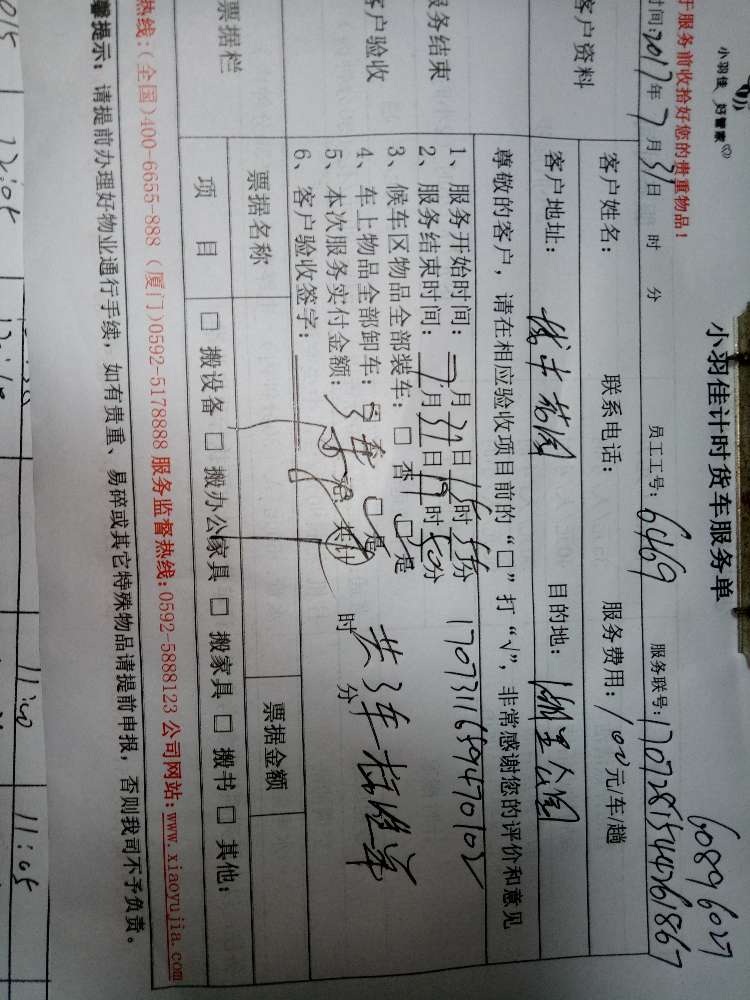 小羽佳 好管家
小羽佳计时货车服务单
60896027
于服务前收拾好您的贵重物品!
时间:2017年7月31日 时 分 员工工号: 6469 服务联号: 1707281544361867
客户资料
客户姓名: 联系电话: 服务费用: 100元/车/趟
客户地址: 花园 目的地: 公园
尊敬的客户,请在相应验收项目前的“□”打“√”,非常感谢您的评价和意见
服务结束
客户验收
1、服务开始时间: 7月31日 时 分 1707311659470102
2、服务结束时间: 7月31日 时 分
3、候车区物品全部装车: □ 否 □ 是
4、车上物品全部卸车: □ 否 □ 是
5、本次服务实付金额: 共计 时 分
6、客户验收签字:
共3车
票据栏
票据名称 票据金额
项目 □ 搬设备 □ 搬办公家具 □ 搬家具 □ 搬书 □ 其他:
热线:(全国)400-6655-888 (厦门)0592-5178888 服务监督热线:0592-5888123 公司网站:www.xiaoyujia.com
馨提示: 请提前办理好物业通行手续,如有贵重、易碎或其它特殊物品请提前申报,否则我司不予负责。
12:05
11:00
11:05